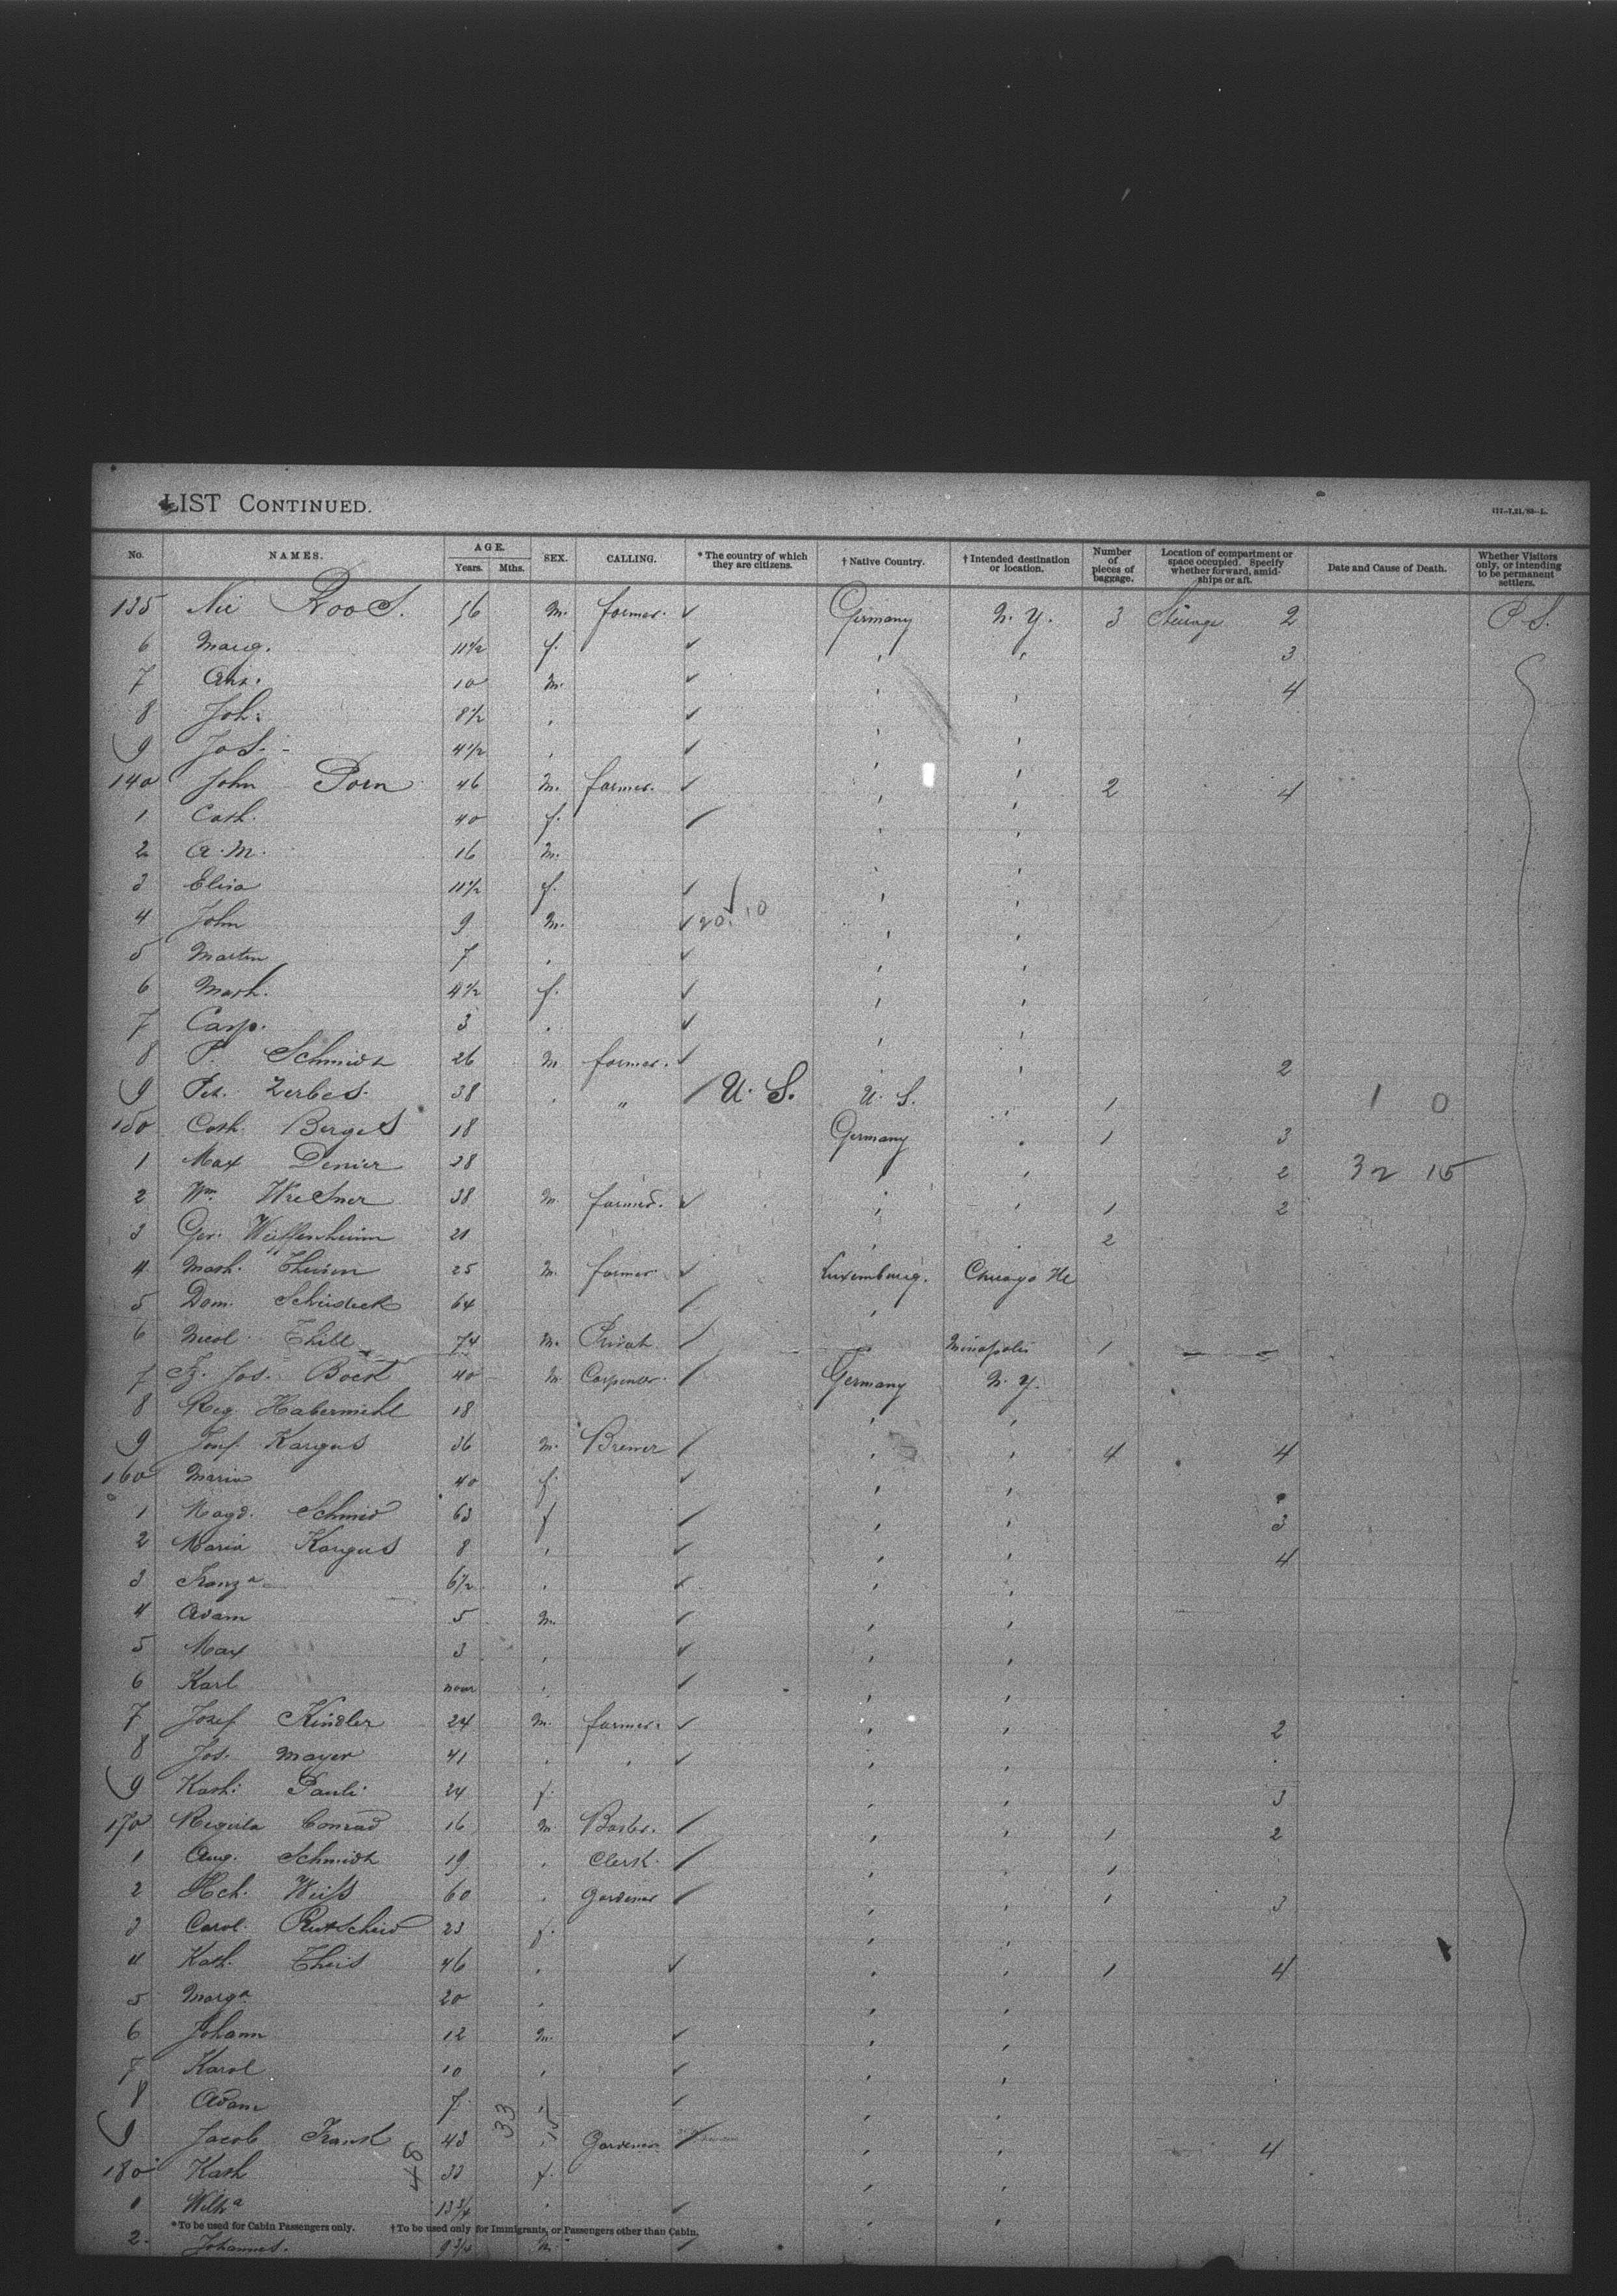 LIST CONTINUED.
No. NAMES. AGE. Years. Mths. SEX. CALLING. * The country of which they are citizens. † Native Country. † Intended destination or location. Number of pieces of baggage. Location of compartment or space occupied. Specify whether forward, amidships or aft. Date and Cause of Death. Whether Visitors only, or intending to be permanent settlers.
135 Nic Roos. 56 m. farmer. ✓ Germany N. Y. 3 Steerage 2 P. S.
6 Marg. 11 1/2 f. ✓ 3
7 10 m. ✓ 4
8 Joh: 8 1/2 ✓
9 Jos. 4 1/2 ✓
140 John Porn 46 m. farmer. ✓ 2 4
1 Cath. 40 f. ✓
2 A. M. 16 m.
3 Elisa 11 1/2 f. ✓
4 John 9 m. ✓ 20. 10
5 Martin 7 ✓
6 Math. 4 1/2 f. ✓
7 Casp. 3 ✓
8 P. Schmidt 26 m farmer. ✓ 2
9 Pet. Zerbes. 38 " ✓ U. S. U. S. 1 1 0
150 Cath. Berges 18 Germany 1 3
1 Max Denier 28 2 32 15
2 Wm. Wiesner 38 m farmer. ✓ 1 2
3 Ger. 21 2
4 Math. Theisen 25 m. farmer. ✓ Luxemburg. Chicago Ill
5 Dom. 64 ✓
6 Nicol Thill 74 m. Privat. ✓ Minapolis 1
7 Fz. Jos. Bock 40 m. Carpenter. ✓ Germany N. Y.
8 Reg. Habermehl 18
9 Josef Kargus 36 m. Brewer ✓ 4 4
160 Maria 40 f. ✓
1 Magd. Schmid 63 f ✓ 3
2 Maria Kargus 8 ✓ 4
3 Franza 6 1/2 ✓
4 Adam 5 m. ✓
5 Max 3 ✓
6 Karl ✓
7 Josef Kindler 24 m. farmer. ✓ 2
8 Jos. Mayer 41 ✓
9 Kath: Pauli 24 f. 3
170 Regula Conrad 16 m ✓ 1 2
1 Aug. Schmidt 19 Clerk. ✓ 1
2 Hch. Weiss 60 Gardener ✓ 1 3
3 Carol. Rutscheid 23 f.
4 Kath. Theis 46 ✓ 1 4
5 Marga 20
6 Johann 12 m. ✓
7 Karol 10 ✓
8 Adam 7 ✓
9 Jacob Frank 43 33 15 Gardener ✓ 4
180 Kath 48 33 f.
1 Wilha 13 3/4 ✓
*To be used for Cabin Passengers only. †To be used only for Immigrants, or Passengers other than Cabin.
2. Johannes. 9 3/4 m ✓